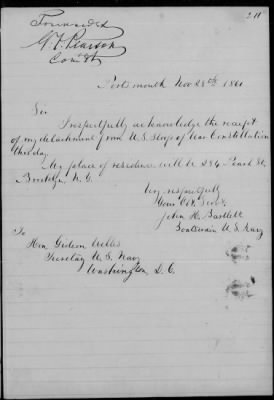 211
Forwarded
G. F. Pearson
Comdt
Portsmouth Nov 28th 1861
Sir
I respectfully acknowledge the receipt
of my detachment from U.S. Sloop of War Constellation
this day.
My place of residence will be 286 Pearl St.
Brooklyn, N.Y.
Very respectfully
Your Obt. Servt.
John H. Bartlett
Boatswain U.S. Navy
To
Hon. Gideon Welles
Secretary U.S. Navy
Washington, D.C.